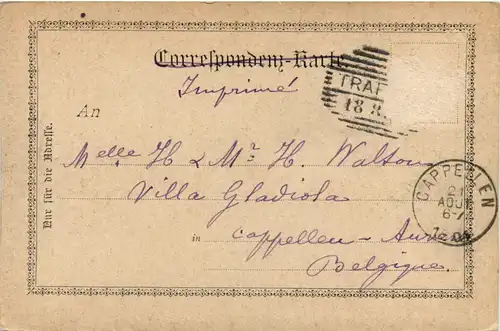 Correspondenz-Karte.
Imprimé
TRAF
18 8.
An
Melle H & Mr. H. Walton
Villa Gladiola
in Cappellen - 
Belgique.
Nur für die Adresse.
CAPPELLEN
21
AOUT
6-7